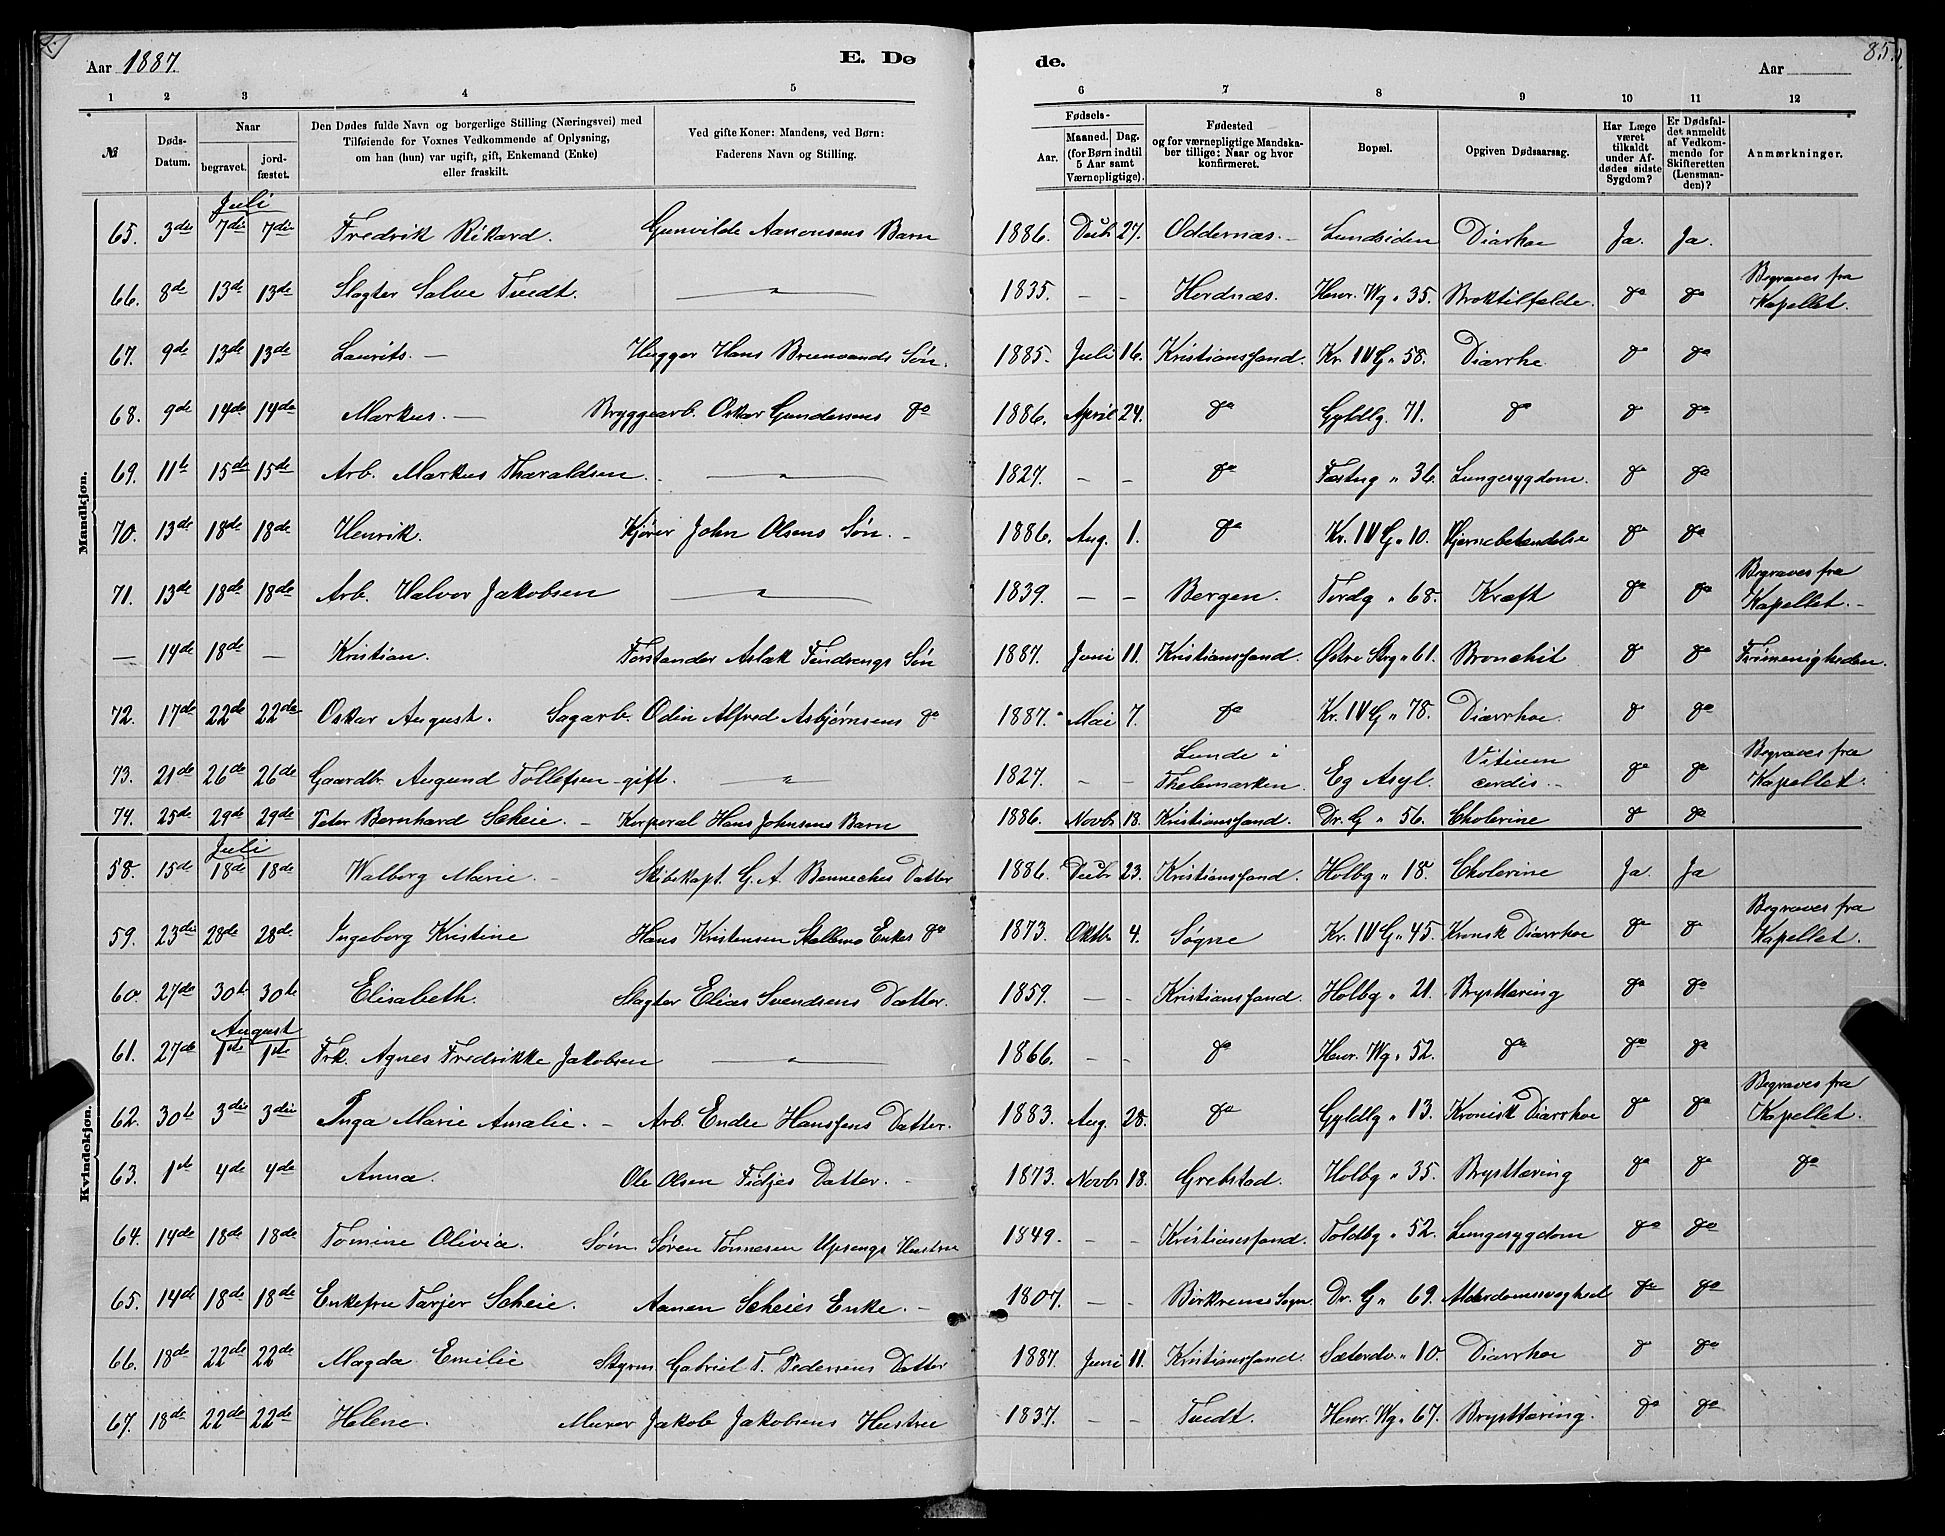 Aar 1887. E. Dø de. Aar 85.
1 2 3 4 5 6 7 8 9 10 11 12
№
Døds-Datum.
Naar
begravet. jordfæstet.
Den Dødes fulde Navn og borgerlige Stilling (Næringsvei) med
Tilføiende for Voxnes Vedkommende af Oplysning,
om han (hun) var ugift, gift, Enkemand (Enke)
eller fraskilt.
Ved gifte Koner: Mandens, ved Børn:
Faderens Navn og Stilling.
Fødsels-
Aar. Maaned. Dag.
(for Børn indtil
5 Aar samt
Værnepligtige).
Fødested
og for værnepligtige Mandskaber tillige: Naar og hvor
konfirmeret.
Bopæl.
Opgiven Dødsaarsag.
Har Læge
været
tilkaldt
under Afdødes sidste
Sygdom?
Er Dødsfaldet anmeldt
af Vedkommende for
Skifteretten
(Lensmanden)?
Anmærkninger.
Mandkjøn.
Juli
65. 3die 7de 7de Fredrik Rikard. Gunvilde Aanonsens Barn 1886. Decbr 27. Oddernæs. Lundsiden Diarhoe Ja. Ja.
66. 8de 13de 13de Slagter Salve Tvedt. " 1835. - - Herdnæs. Henr. Wg " 35. Broktilfælde. do do Begraves fra Kapellet.
67. 9de 13de 13de Laurits. - Hugger Hans Brunvands Søn. 1885. Juli 16. Kristianssand. Kr. IV G " 58. Diarrhe do do
68. 9de 14de 14de Markus. - Bryggearb. Oskar Gundersens do 1886. April 24. do Gyldlg. 71. do do do
69. 11te 15de 15de Arb. Markus Tharaldsen. " 1827. - - do Fæstng " 36. Lungesygdom. do do
70. 13de 18de 18de Henrik. Kjører John Olsens Søn. - 1886. Aug. 1. do Kr. IV G " 10. Hjernebetændelse do do
71. 13de 18de 18de Arb. Halvor Jakobsen " 1839. - - Bergen. Tordg " 68. Kræft do do Begraves fra Kapellet. -
— 14de 18de — Kristian. Forstander Aslak Tindrengs Søn 1887. Juni 11. Kristianssand. Østre Strg " 61. Bronchit do do Frimenigheden.
72. 17de 22de 22de Oskar August. Sagarb. Odin Alfred Asbjørnsens do 1887. Mai 7. do Kr. IV G " 78. Diarrhoe. do do
73. 21de 26de 26de Gaardbr. Augund Tollefsen - gift. " 1827. - - Lunde i Thelemarken. Eg Asyl. Vitium cordis. - do do Begraves fra Kapellet.
74. 25de 29de 29de Peter Bernhard Scheie. - Korporal Hans Johnsens Barn 1886. Novbr 18. Kristianssand. Dr. G " 56. Cholerine do do
Kvindekjøn.
Juli
58. 15de 18de 18de Walborg Marie. - Skibskapt. G. A. Benneches Datter 1886. Decbr 23. Kristianssand. Holbg " 18. Cholerine Ja. Ja
59. 23die 28de 28de Ingeborg Kristine Hans Kristensen Stallemo Enkes do 1873. Oktbr 4. Søgne Kr. IV G " 45. Kronsk Diarrhoe do do Begraves fra Kapellet.
60. 27de 30te 30te Elisabeth. Slagter Elias Svendsens Datter. 1859. - - Kristianssand. Holbg " 21. Brysttæring do do
August
61. 27de 1ste 1ste Frk. Agnes Fredrikke Jakobsen " 1866. - - do Henr. Wg " 52. do do do
62. 30te 3die 3die Inga Marie Amalie. - Arb. Endre Hanssens Datter. 1883. Aug. 28. do Gyldlg " 13. Kronisk Diarrhoe do do Begraves fra Kapellet.
63. 1ste 4de 4de Anna. Ole Olsen Fidjes Datter. - 1873. Novbr 18. Grebstad. Holbg " 35. Brysttæring do do do
64. 14de 18de 18de Tomine Olivia. Søm. Søren Tønnesen Upsengs Hustru 1849. - - Kristianssand. Toldbg " 52. Lungesygdom do do
65. 14de 18de 18de Enkefru Tarjer Scheie. Aanen Scheies Enke. - 1807. - - Birkrems Sogn. Dr. G " 69. Alderdomssvaghed do do
66. 18de 22de 22de Magda Emilie Styrm. Gabriel T. Pedersens Datter 1887. Juni 11. Kristianssand. Sæterdv. " 10. Diarrhoe do do
67. 18de 22de 22de Helene. Murer Jakob Jakobsens Hustru 1837. - - Tvedt. Henr. Wg " 67. Brysttæring. do do